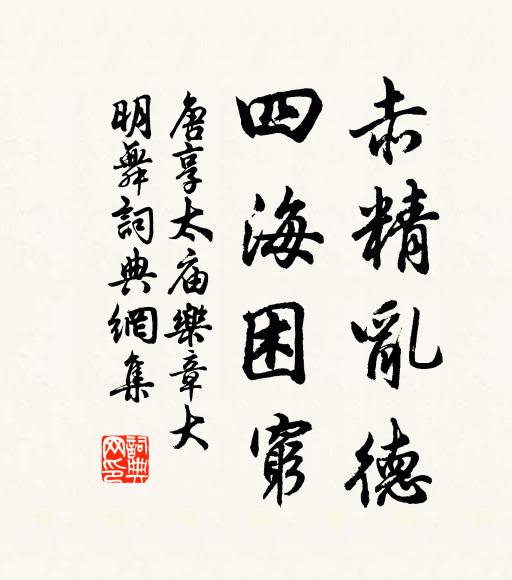 赤精亂德
四海困窮
唐享太廟樂章大
明舞詞典網集
詞典网印